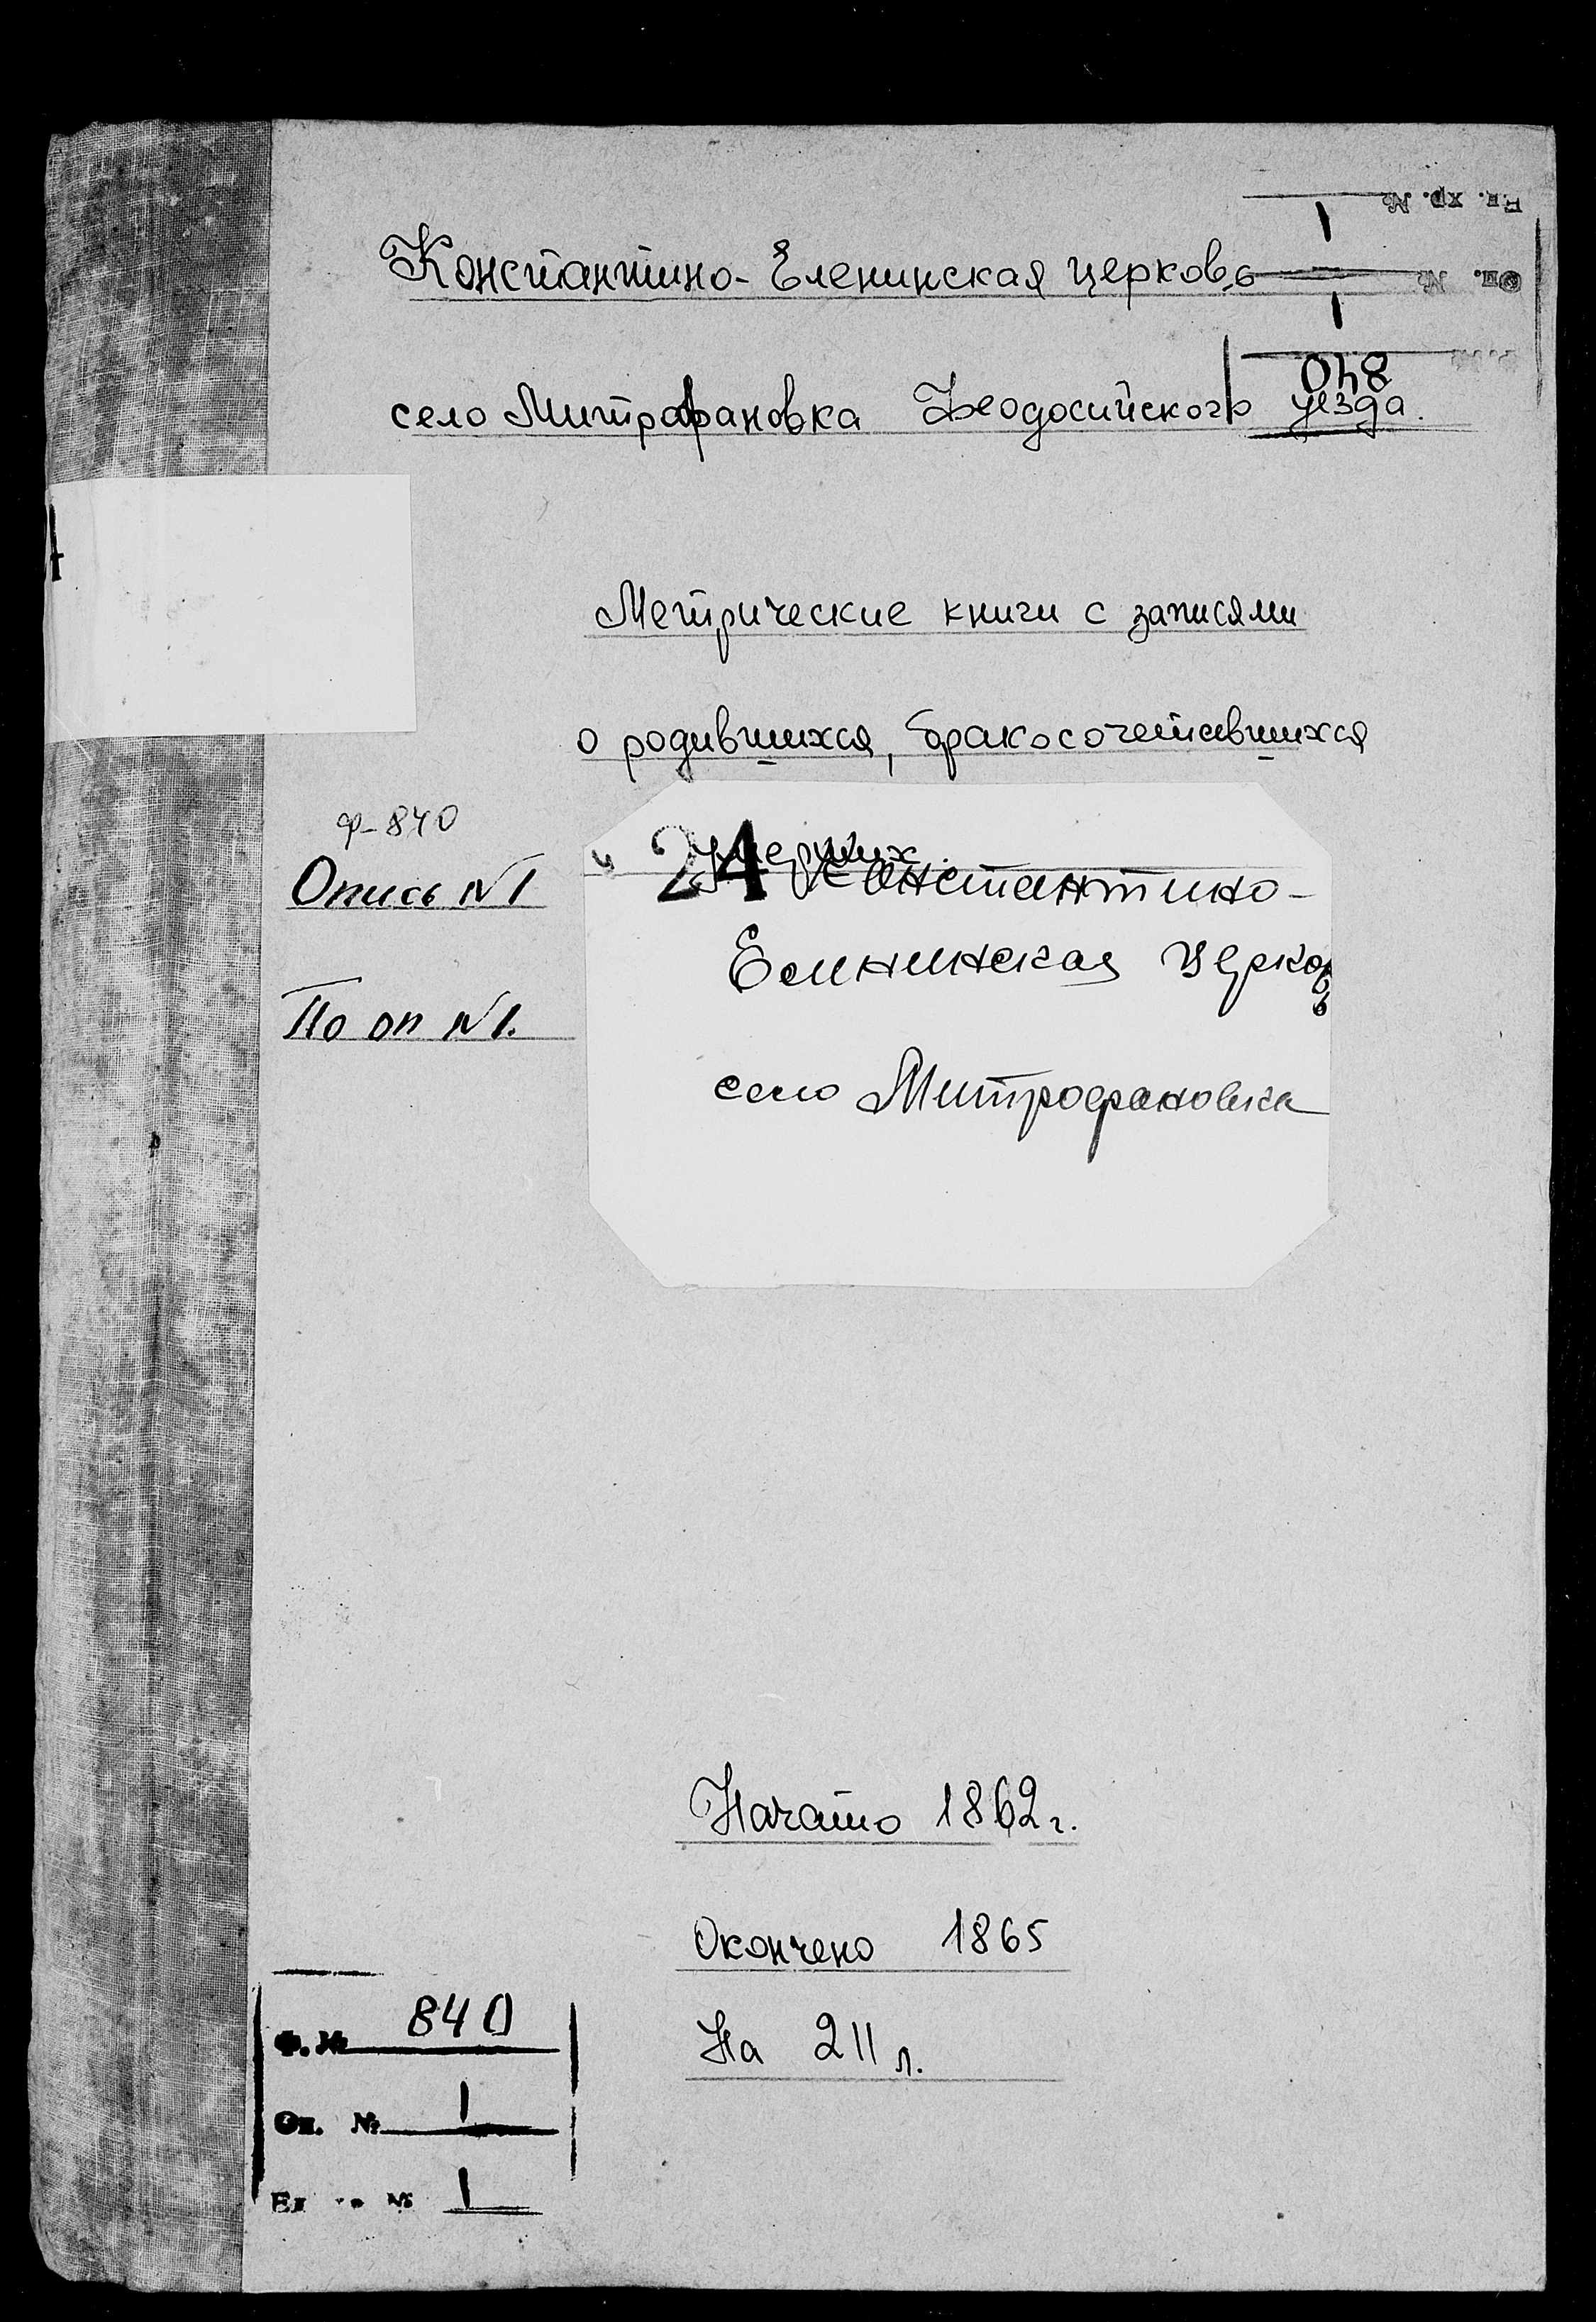 Ед. хр. № 1
Оп. № 1
840
Константино-Еленинская церковь
село Митрофановка Феодосийского уезда.
Метрические книги с записями
о родившихся, бракосочетавшихся
и умерших.
24 Константино-
Еленинская церковь
село Митрофановка
Ф-840
Опись №1
По оп №1.
Начато 1862 г.
Окончено 1865
На 211 л.
Ф. № 840
Оп. № 1
Ед № 1